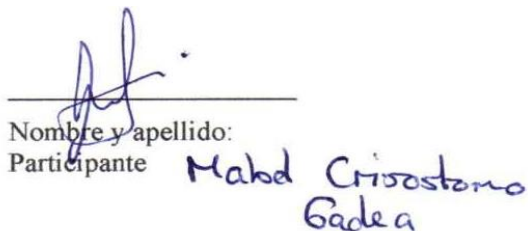 Nombre y apellido:
Participante Mabel Crisostomo
Gadea